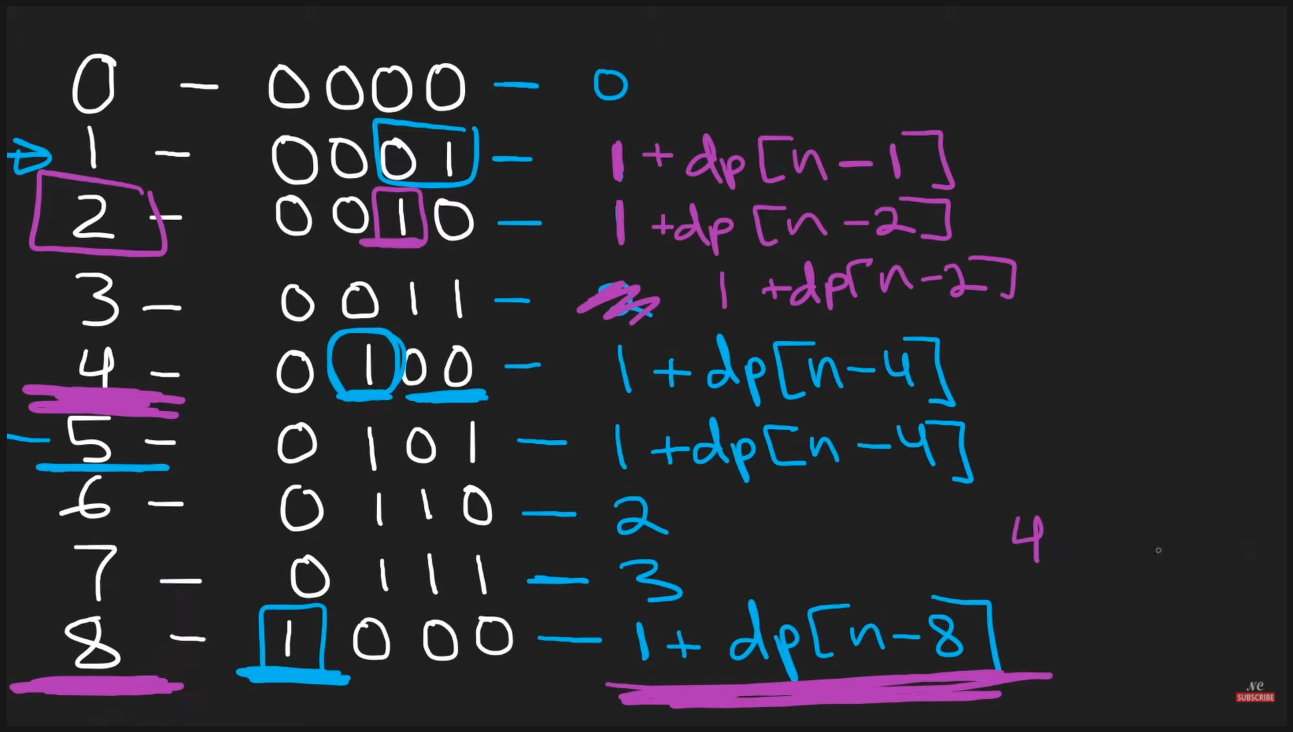 0 - 0000 - 0
1 - 0001 - 1 + dp[n-1]
2 - 0010 - 1 + dp[n-2]
3 - 0011 - 1 + dp[n-2]
4 - 0100 - 1 + dp[n-4]
5 - 0101 - 1 + dp[n-4]
6 - 0110 - 2
4
7 - 0111 - 3
8 - 1000 - 1 + dp[n-8]
NC
SUBSCRIBE